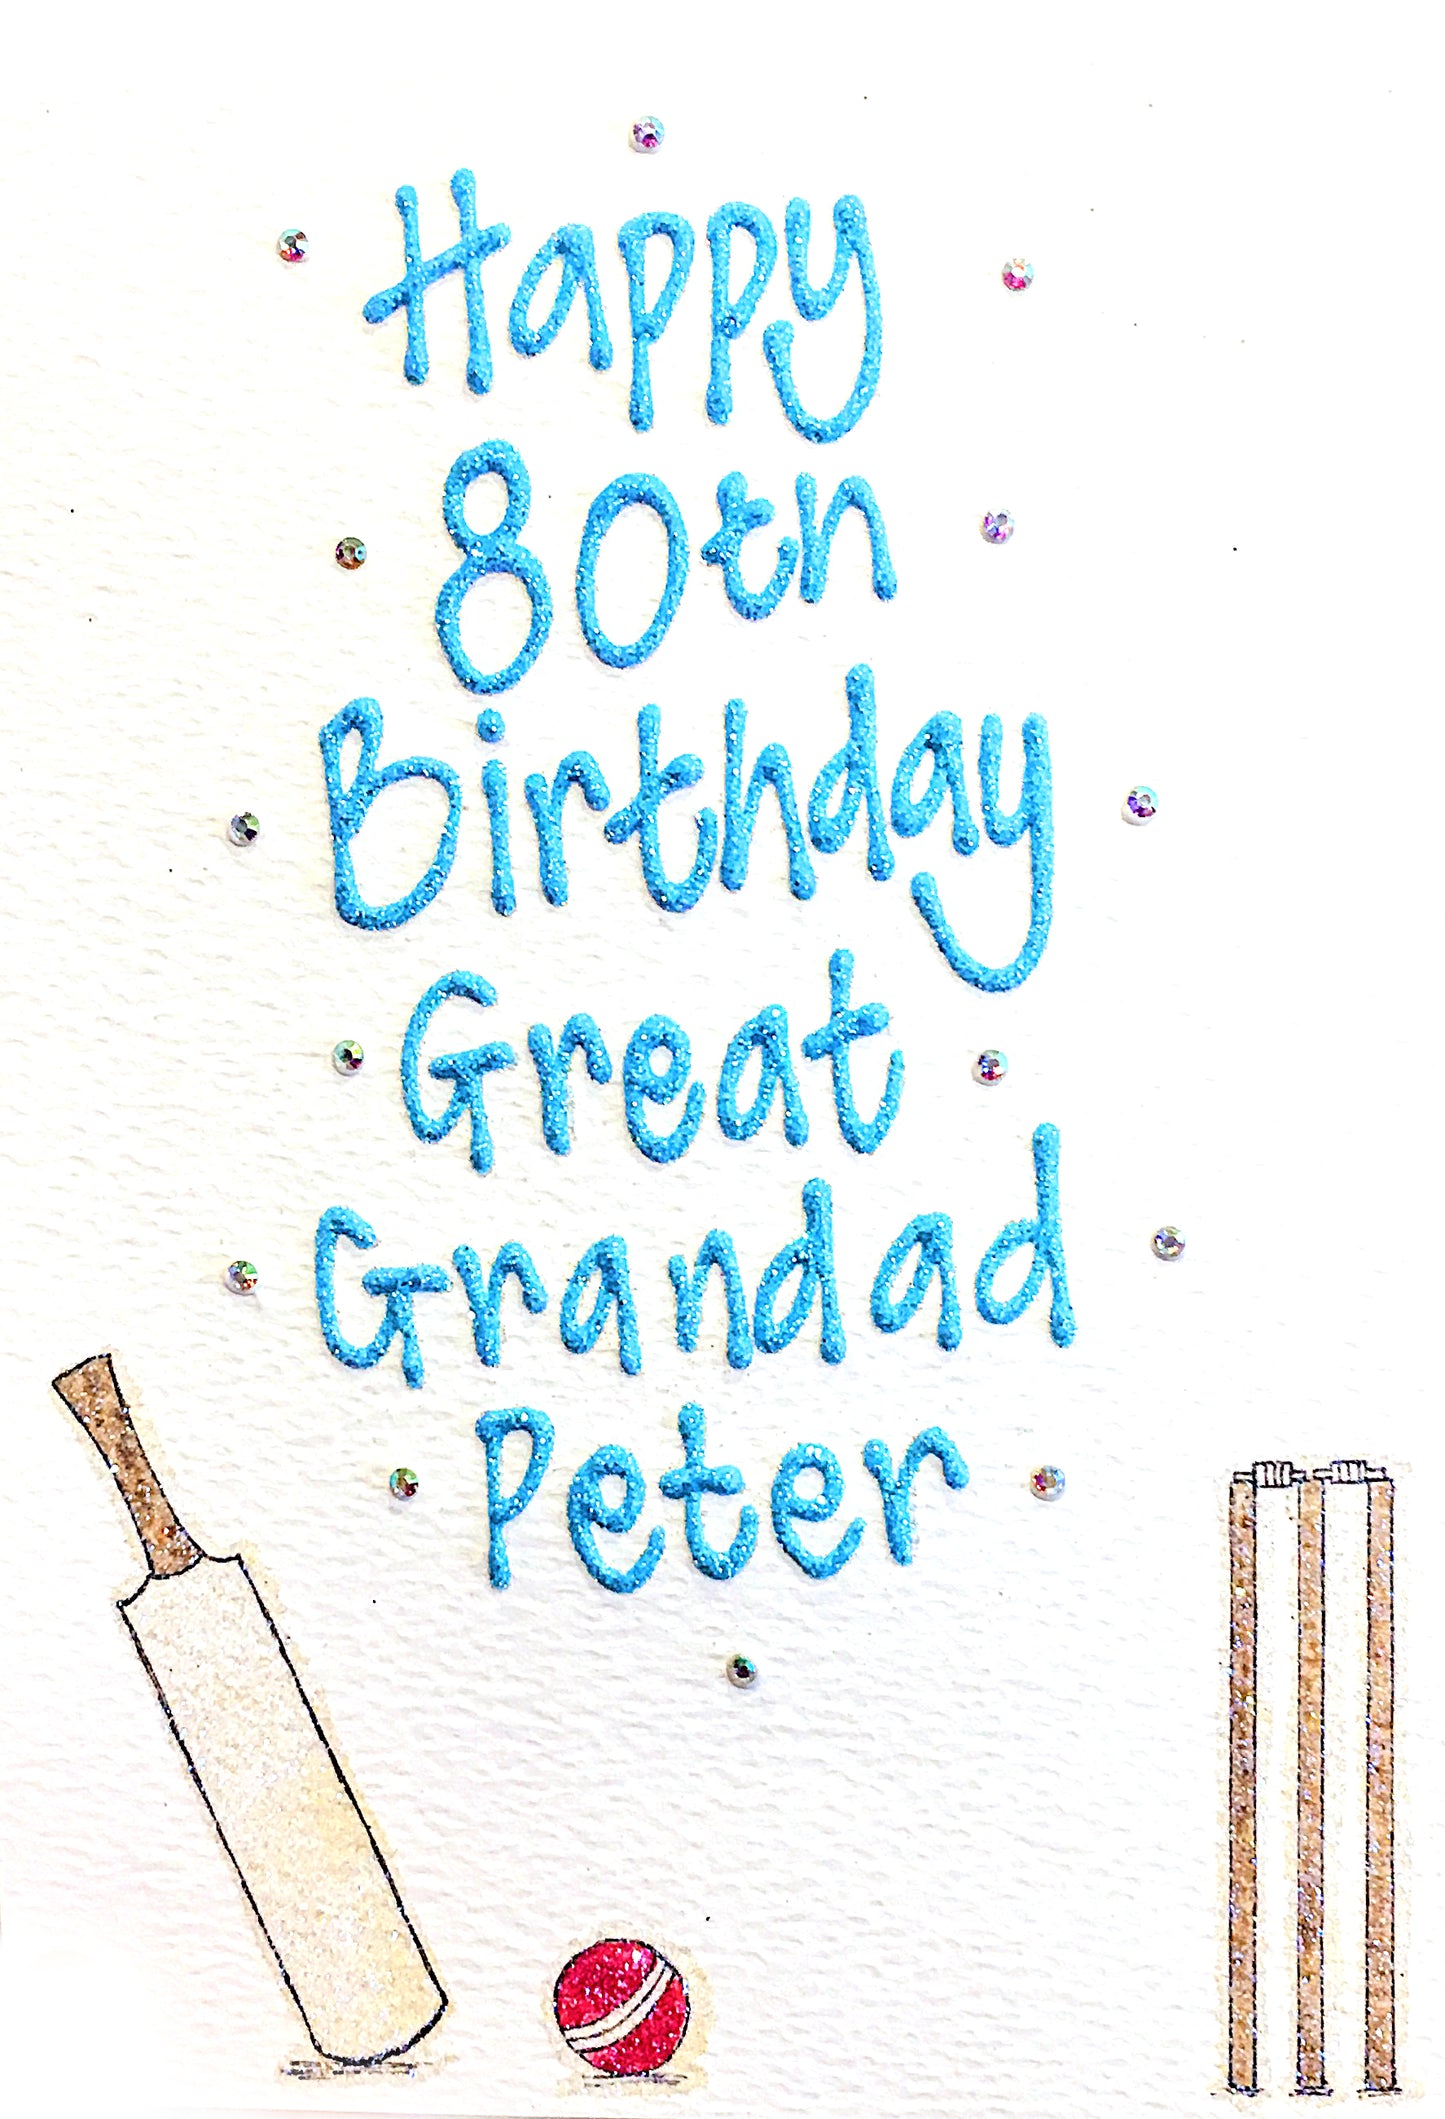 Happy
80th
Birthday
Great
Grandad
Peter